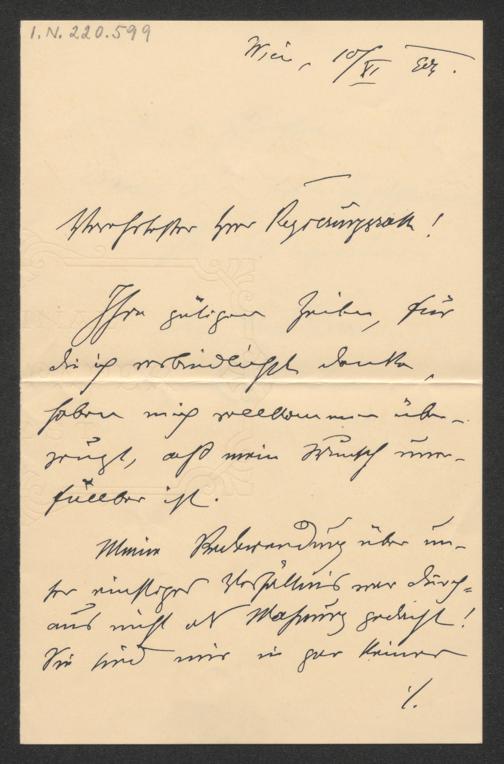 I.N. 220.599
Wien, 10/XI
Verehrtester Herr Regierungsrath!
Ihre gütigen Zeilen, für
die ich verbindlichst danke,
haben mich vollkommen über-
zeugt, daß mein Wunsch uner-
füllbar ist.
Meine Bemerkung über un-
ser einstiges Verhältnis war durch-
aus nicht als Mahnung gedacht!
Sie sind mir in gar keiner
./.